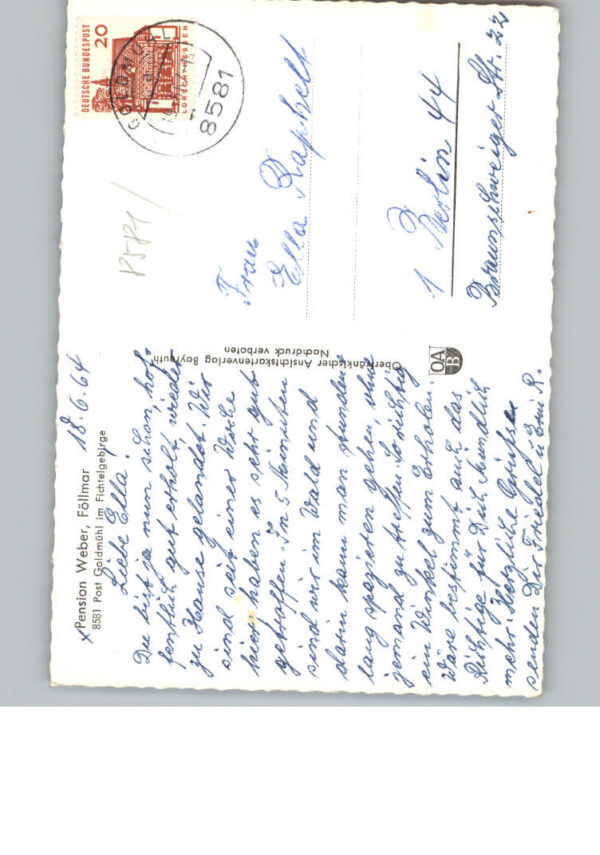 Pension Weber, Föllmar
8581 Post Goldmühl im Fichtelgebirge
18.6.64
Liebe Ella!
Du bist ja nun schon, hof-
fentlich gut erholt, wieder
zu Hause gelandet. Wir
sind seit einer Woche
hier, haben es sehr gut
getroffen. In 5 Minuten
sind wir im Wald und
darin kann man stunden-
lang spazieren gehen ohne
jemand zu treffen. So richtig
ein Winkel zum Erholen.
Wäre bestimmt auch das
Richtige für Dich. Mündlich
mehr. Herzliche Grüße
senden Dir Friedel u. R.
Oberfränkischer Ansichtskartenverlag Bayreuth
Nachdruck verboten
OA
B
DEUTSCHE BUNDESPOST
20
LORSCH/HESSEN
GOLDMÜHL
8581
8581/
Frau
Ella Raphelt
1 Berlin 44
Braunschweiger Str. 22